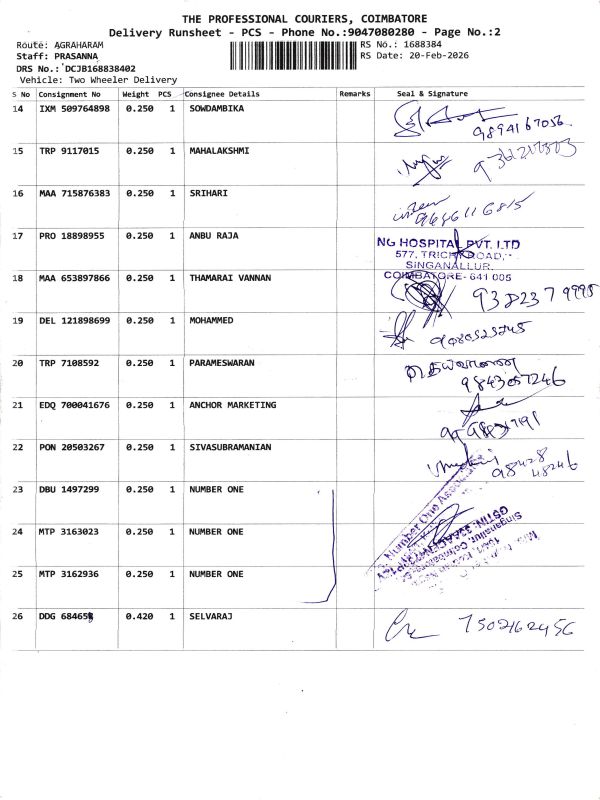 THE PROFESSIONAL COURIERS, COIMBATORE
Delivery Runsheet - PCS - Phone No.:9047080280 - Page No.:2
Route: AGRAHARAM RS No.: 1688384
Staff: PRASANNA RS Date: 20-Feb-2026
DRS No.: DCJB168838402
Vehicle: Two Wheeler Delivery
S No Consignment No Weight PCS Consignee Details Remarks Seal & Signature
14 IXM 509764898 0.250 1 SOWDAMBIKA 9894167056
15 TRP 9117015 0.250 1 MAHALAKSHMI
16 MAA 715876383 0.250 1 SRIHARI 9686116815
17 PRO 18898955 0.250 1 ANBU RAJA
NG HOSPITAL PVT. LTD
577, TRICHY ROAD,
SINGANALLUR,
COIMBATORE- 641 005
18 MAA 653897866 0.250 1 THAMARAI VANNAN 938237 9995
19 DEL 121898699 0.250 1 MOHAMMED
20 TRP 7108592 0.250 1 PARAMESWARAN
9843057246
21 EDQ 700041676 0.250 1 ANCHOR MARKETING
22 PON 20503267 0.250 1 SIVASUBRAMANIAN 98428
48246
23 DBU 1497299 0.250 1 NUMBER ONE
24 MTP 3163023 0.250 1 NUMBER ONE
25 MTP 3162936 0.250 1 NUMBER ONE
Number One
Singanallur, Coimbatore
GSTIN:
26 DDG 68465 0.420 1 SELVARAJ 7502162456